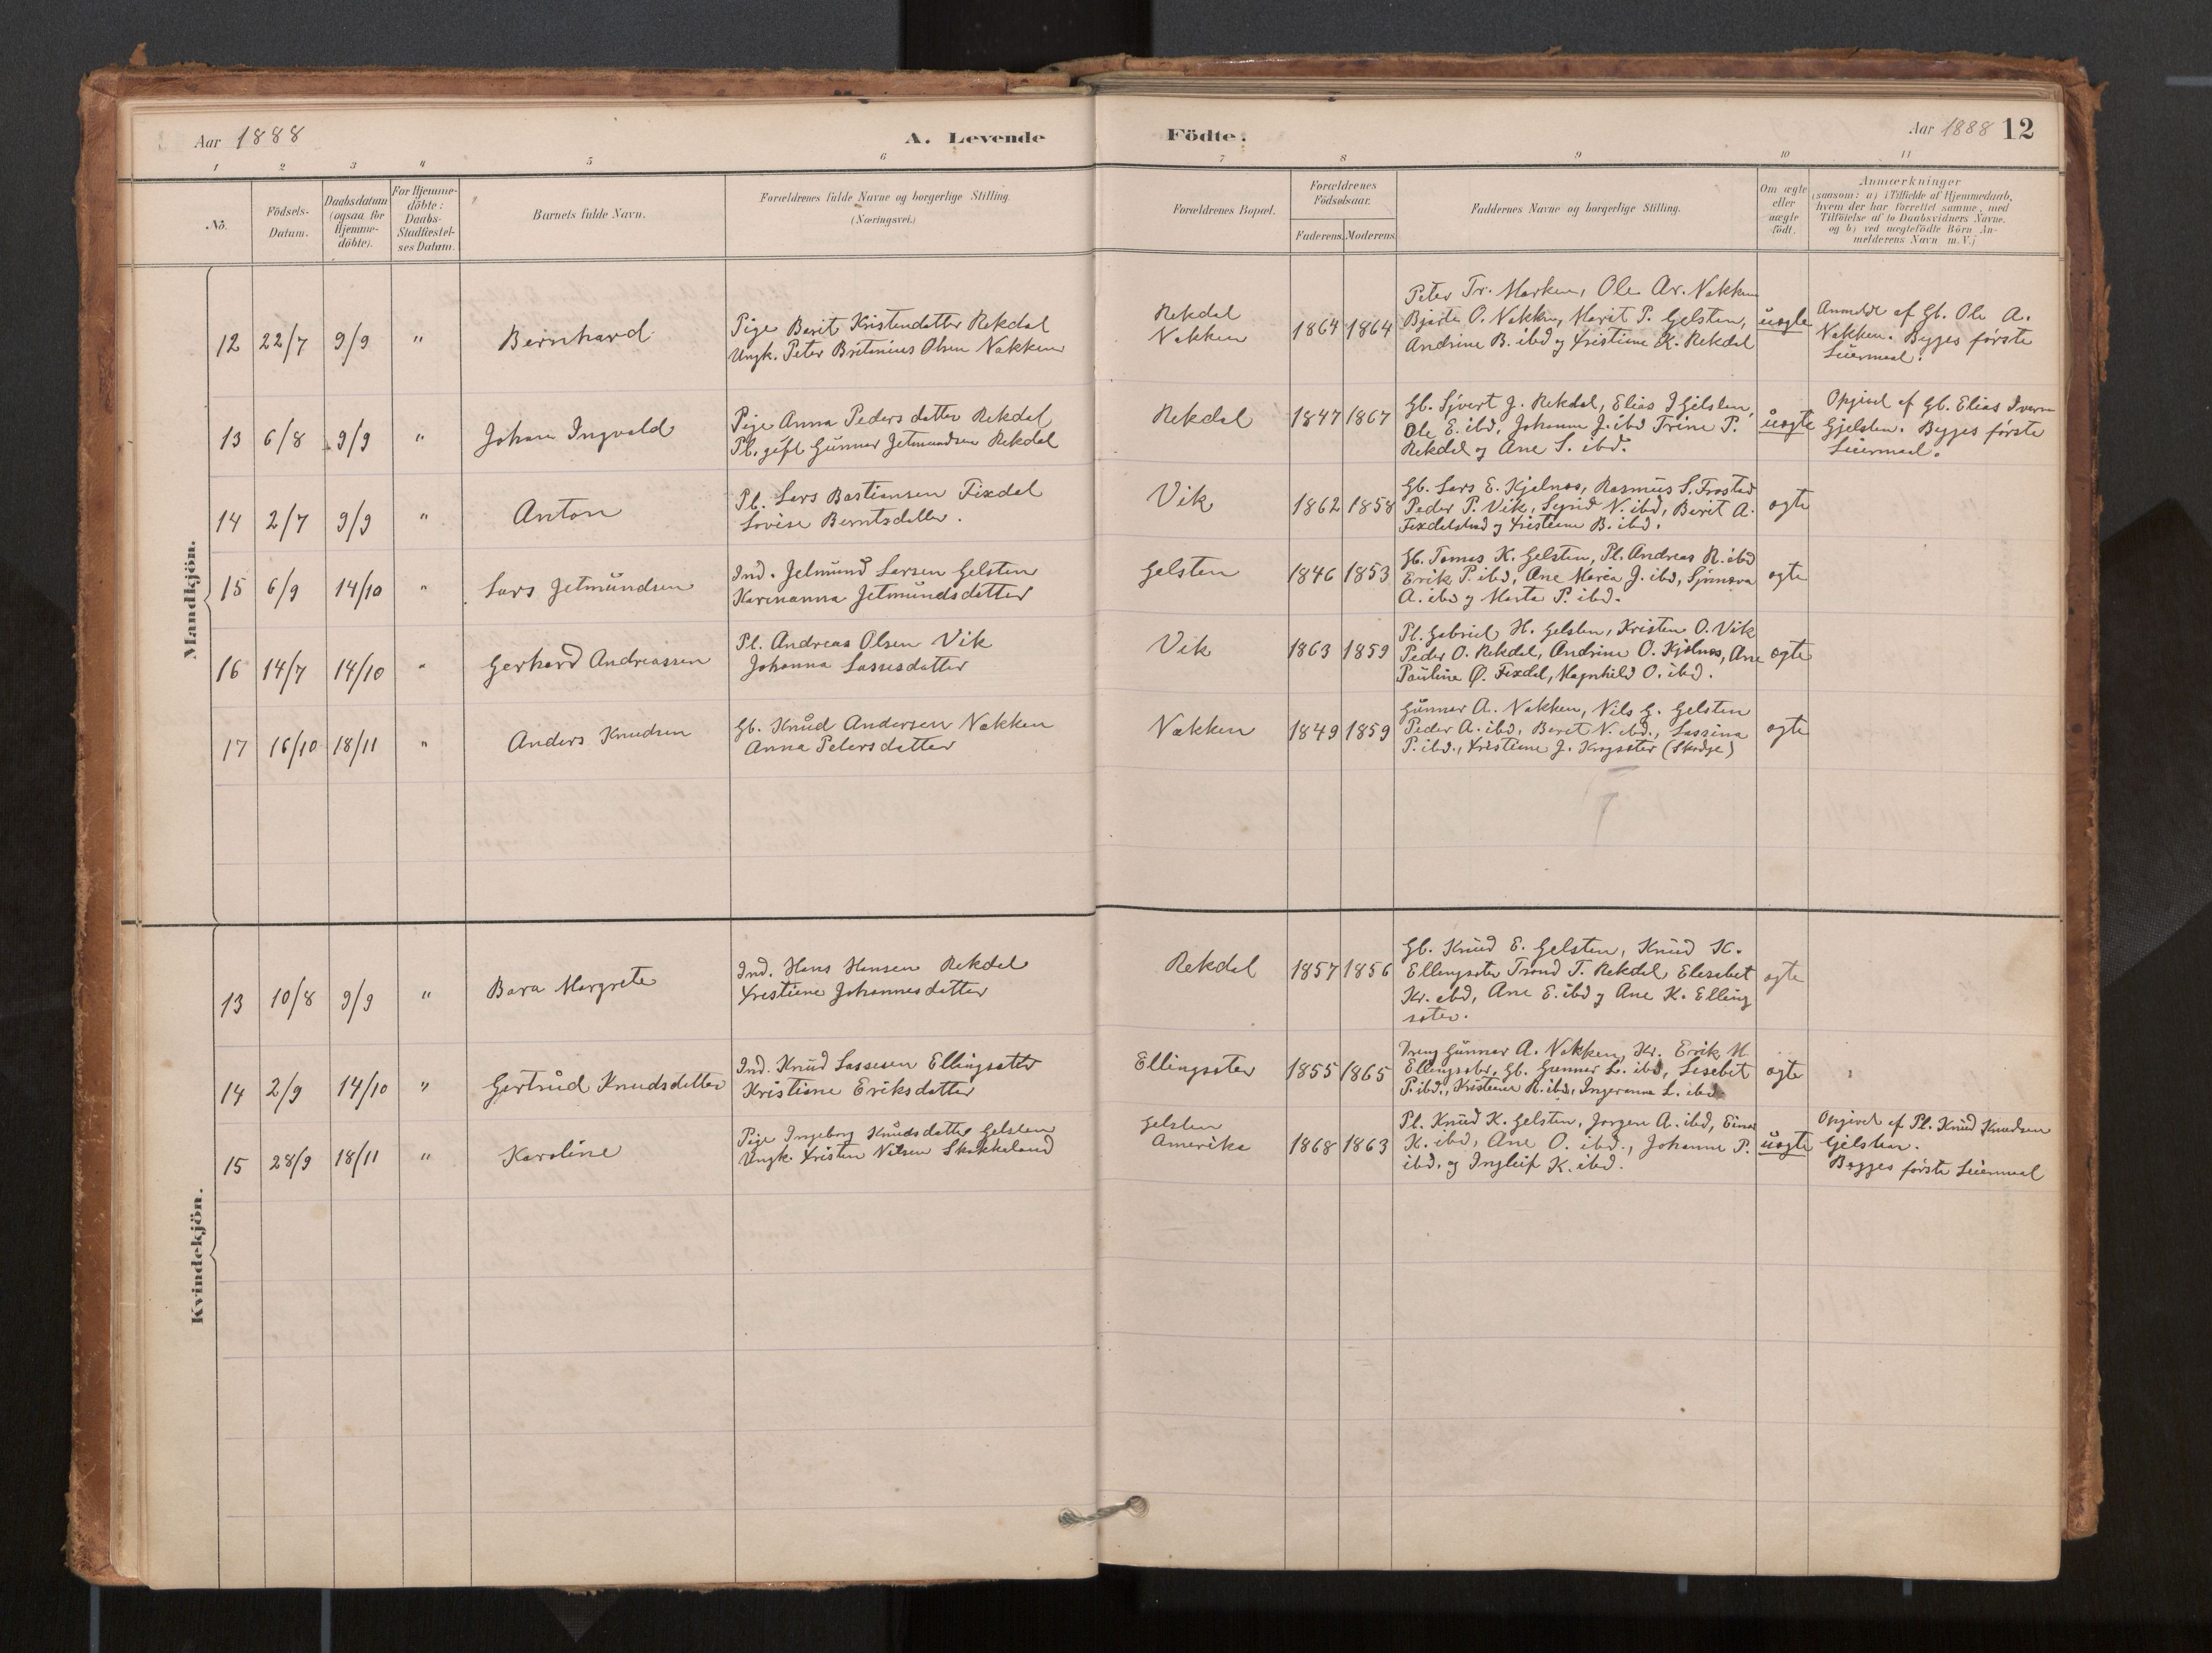 Aar 1888
A. Levende
Födte.
Aar 1888 12
1 2 3 4 5 6 7 8 9 10 11
No.
Födsels-
Datum.
Daabsdatum
(ogsaa for
Hjemme-
döbte).
For Hjemme-
döbte:
Daabs-
Stadfæstel-
ses Datum.
Barnets fulde Navn.
Forældrenes fulde Navne og borgerlige Stilling.
(Næringsvei.)
Forældrenes Bopæl.
Forældrenes
Födselsaar.
Faderens. Moderens.
Faddernes Navne og borgerlige Stilling.
Om ægte
eller
uægte
födt.
Anmærkninger
(saasom: a) i Tilfælde af Hjemmedaab,
hvem der har forrettet samme, med
Tilföielse af to Daabsvidners Navne.
og b) ved uægtefödte Börn An-
melderens Navn m. V.)
Mandkjön.
12 22/7 9/9 " Bernhard
Pige Berit Kristendatter Rekdal
Ungk. Peter Britinius Olsen Nakken
Rekdal
Nakken
1864 1864
Peter Tr. Marken, Ole Ar. Nakken
Bjarte O. Nakken, Marit P. Gelsten,
Andrine B. ibd og Kristiane K. Rekdal
uægte
Anmeldt af Gb. Ole A.
Nakken. Begges første
Leiermaal.
13 6/8 9/9 " Johan Ingvald
Pige Anna Pedersdatter Rekdal
Pl. gift Gunnar Jetmundsen Rekdal
Rekdal
1847 1867
Gb. Sjvert J. Rekdal, Elias I Gjelsten,
Ole E. ibd, Johanne J. ibd Trine P.
Rekdal og Ane S. ibd.
uægte
Opgivet af Gb. Elias Iversen
Gjelsten. Begges første
Leiermaal.
14 2/7 9/9 " Anton
Pl. Lars Bastiansen Fixdal
Lovise Berntsdatter.
Vik
1862 1858
Gb. Lars E. Kjelnæs, Rasmus S. Frostad
Peder P. Vik, Sigrid N. ibd, Berit A.
Fixdalstad og Kristiane B. ibd.
ægte
15 6/9 14/10 " Lars Jetmundsen
Ind. Jetmund Larsen Gelsten
Karenanna Jetmundsdatter
Gelsten
1846 1853
Gb. Tomas K. Gelsten, Pl. Andreas R. ibd
Erik P. ibd, Ane Marea J. ibd, Synnøva
A. ibd og Marta P. ibd.
ægte
16 14/7 14/10 " Gerhard Andreassen
Pl. Andreas Olsen Vik
Johanna Lassesdatter
Vik
1863 1859
Pl. Gabriel H. Gelsten, Kristen O. Vik
Peder O. Rekdal, Andrine O. Kjelnæs, Ane
Pauline Ø. Fixdal, Magnhild O. ibd.
ægte
17 16/10 18/11 " Anders Knudsen
Gb. Knud Andersen Nakken
Anna Petersdatter
Nakken
1849 1859
Gunnar A. Nakken, Nils G. Gelsten
Peder A. ibd, Beret N. ibd., Lassina
P. ibd., Kristiane J. Krogsæter (Skodje)
ægte
Kvindekjön.
13 10/8 9/9 " Bara Margrete
Ind. Hans Hansen Rekdal
Kristiane Johannesdatter
Rekdal
1857 1856
Gb. Knud E. Gelsten, Knud K.
Ellingsæter Trond T. Rekdal Elesebet
Kr. ibd, Ane E. ibd og Ane K. Elling
sæter.
ægte
14 2/9 14/10 " Gertrud Knudsdatter
Ind. Knud Lassesen Ellingsæter
Kristiane Eriksdatter
Ellingsæter
1855 1865
Dreng Gunnar A. Nakken, Kr. Erik M
Ellingsæter, Gb. Gunnar L. ibd, Lisebit
P. ibd., Kristiane R. ibd, Ingeranna L. ibd
ægte
15 28/9 18/11 " Karoline
Pige Ingeborg Knudsdatter Gelsten
Ungk. Kristen Nilsen Skakkaland
Gelsten
Amerika
1868 1863
Pl. Knud K. Gelsten, Jørgen A. ibd, Einar
K. ibd, Ane O. ibd., Johanne P.
ibd. og Ingleif K. ibd.
uægte
Opgivet af Pl. Knud Knudsen
Gjelsten.
Begges første Leiermaal